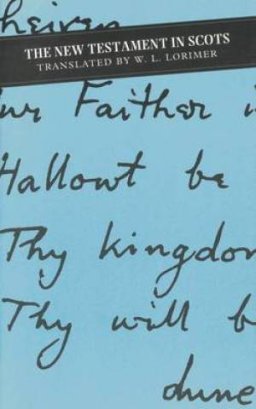 heiven
THE NEW TESTAMENT IN SCOTS
TRANSLATED BY W. L. LORIMER
ur Faither i
Hallowt be
Thy kingdom
Thy will b
dune